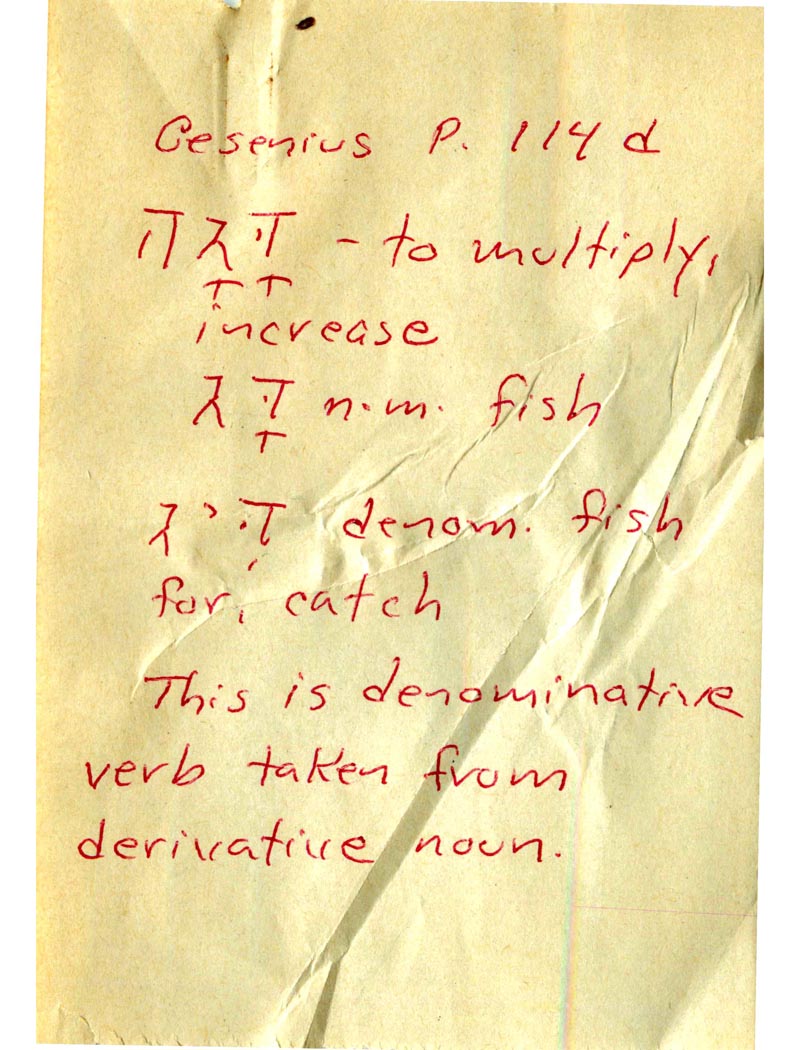 Gesenius P. 114 d
דָּגָה - to multiply,
increase
דָּג n.m. fish
דִּיג denom. fish
for, catch
This is denominative
verb taken from
derivative noun.